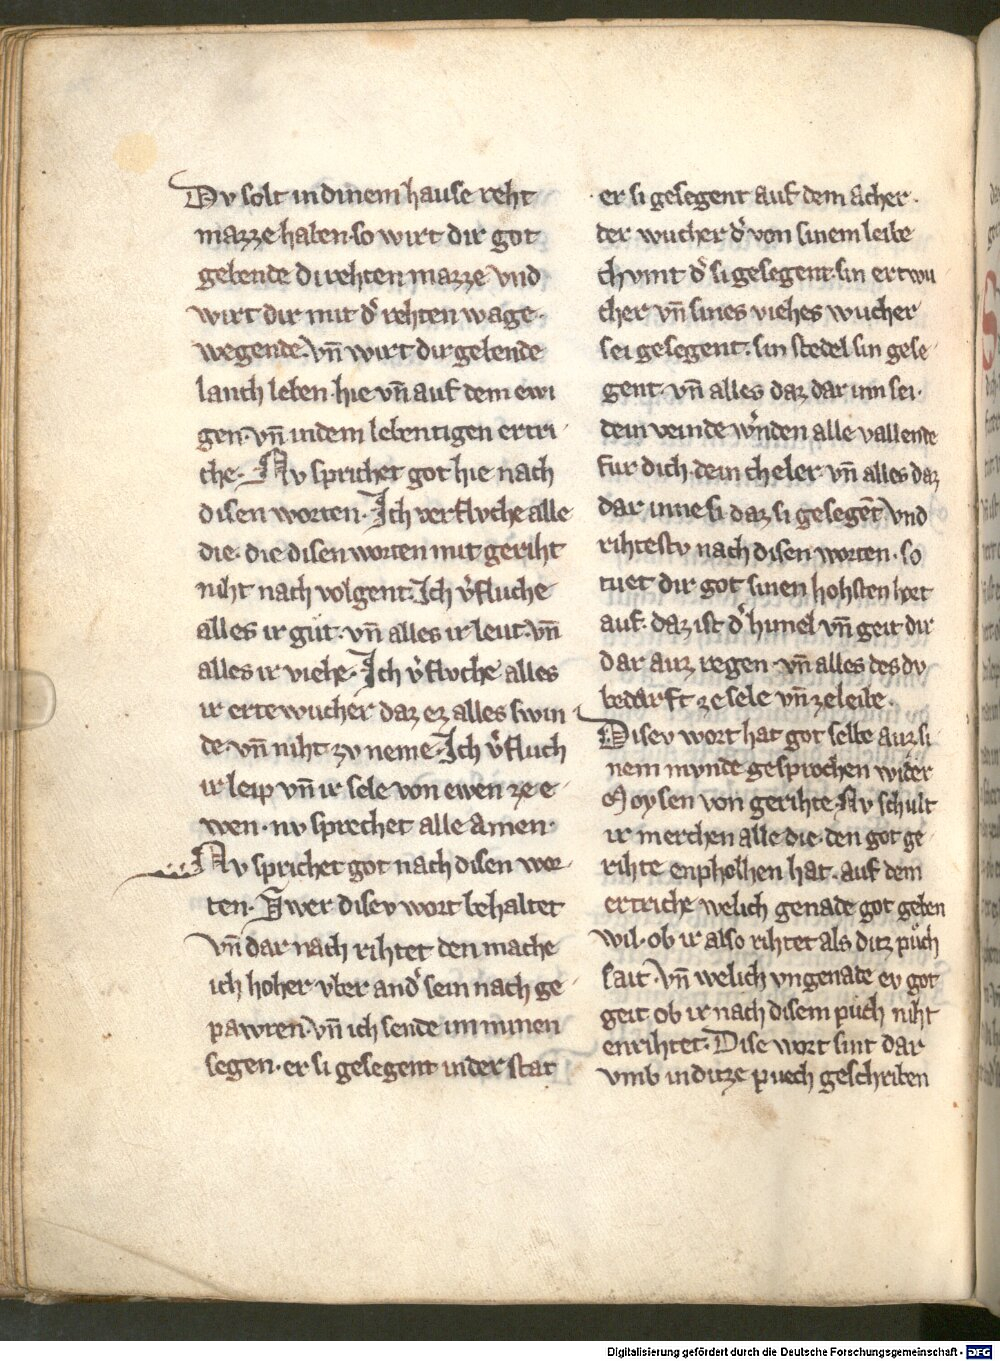 Dv solt in dinem hause reht
mazze haben · so wirt dir got
gebende di rehten mazze vnd
wirt dir mit d̾ rehten wage ·
wegende · vn̄ wirt dir gebende
lanch leben · hie vn̄ auf dem ewi
gen · vn̄ in dem lebentigen ertri
che · Nv sprichet got hie nach
disen worten · Ich verflvche alle
die · die disen worten mit geriht
niht nach volgent · Ich v̾fluche
alles ir gůt · vn̄ alles ir leut · vn̄
alles ir viehe · Ich v̾flvche alles
ir ertewucher daz ez alles swin
de · vn̄ niht zv neme · Ich v̾fluch
ir leip vn̄ ir sele von ewen ze e
wen · nv sprechet alle amen ·
Nv sprichet got nach disen wor
ten · Swer disev wort behaltet
vn̄ dar nach rihtet den mache
ich hoher vber and̾ sein nach ge
pawren vn̄ ich sende im minen
segen · er si gesegent in der stat
er si gesegent auf dem acher ·
der wucher d̾ von sinem leibe
chvmt d̾ si gesegent · sin ertwu
cher vn̄ sines viehes wucher
sei gesegent · sin stedel sin gese
gent · vn̄ alles daz dar inn sei ·
dein veinde w̾nden alle vallende
fur dich · dein cheler · vn̄ alles daz
dar inne si daz si gesegēt vnd
rihtestv nach disen worten · so
tuet dir got sinen hohsten hort
auf · daz ist d̾ himel vn̄ geit dir
dar auz regen · vn̄ alles des dv
bedarft ze sele vn̄ ze leibe ·
Disev wort hat got selbe auz si
nem mvnde gesprochen wider
Moysen von gerihte · Nv schult
ir merchen alle die · den got ge
rihte enpholhen hat · auf dem
ertriche welich genade got geben
wil · ob ir also rihtet als ditz půch
sait · vn̄ welich vngenade ev got
geit ob ir nach disem půch niht
enrihtet · Dise wort sint dar
vmb in ditze puech geschriben
Digitalisierung gefördert durch die Deutsche Forschungsgemeinschaft - DFG